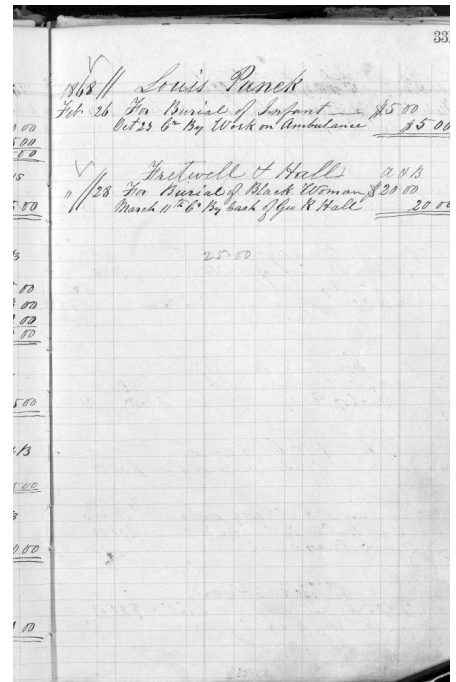 33
1868 // Louis Panck
Feb 26 For Burial of Infant $5 00
Oct 23 Cr By Work on Ambulance $5 00
Fretwell & Hall A & B
" // 28 For Burial of Black Woman $20 00
March 11th Cr By Cash of Geo R Hall 20 00
25.00